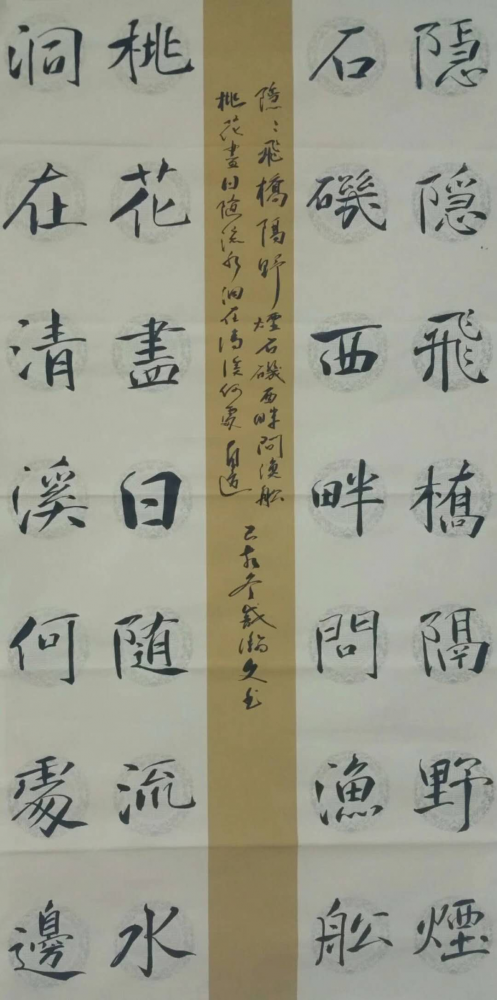 隐隐飛橋隔野煙
石磯西畔問漁舩
隱〻飛橋隔野煙石磯西畔問漁舩
桃花盡日随流水洞在清溪何處邊
己亥冬瀚文书
桃花盡日随流水
洞在清溪何處邊